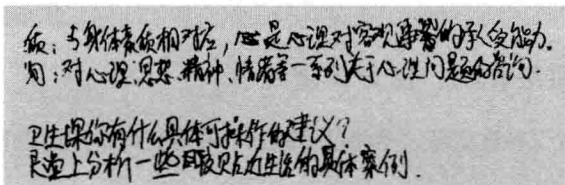 质：与身体素质相对应，心是心理对客观事物的承受能力.
询：对心理、思想、精神、情绪等一系列关于心理问题的咨询.
卫生课你有什么具体可操作的建议？
课堂上分析一些比较贴近生活的具体案例.